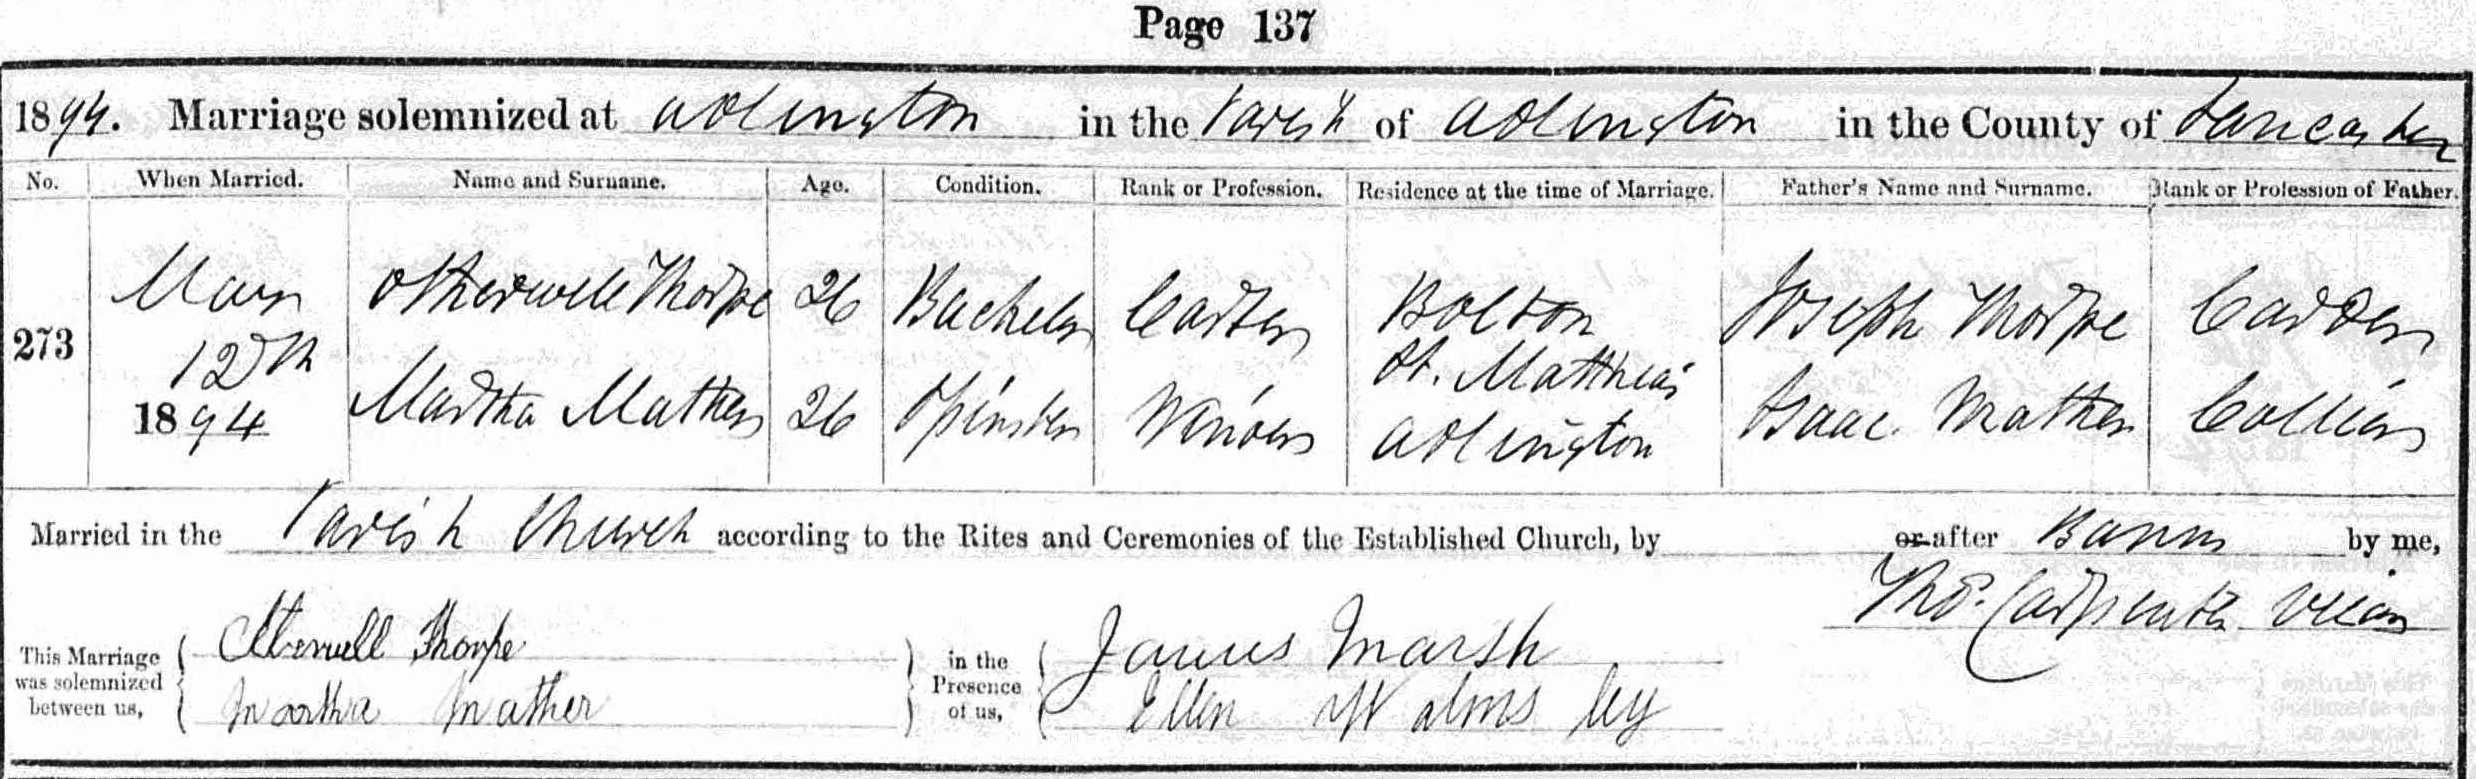 Page 137
1894. Marriage solemnized at Adlington in the Parish of Adlington in the County of Lancaster
No. When Married. Name and Surname. Age. Condition. Rank or Profession. Residence at the time of Marriage. Father's Name and Surname. Rank or Profession of Father.
273 May 12th 1894
Otherwell Thorpe 26 Bachelor Carter Bolton St. Matthias Joseph Thorpe Carder
Martha Mather 26 Spinster Winder Adlington Isaac Mather Collier
Married in the Parish Church according to the Rites and Ceremonies of the Established Church, by or after Banns by me,
Thos. Carpenter Vicar
This Marriage was solemnized between us, Otherwell Thorpe
Martha Mather
in the Presence of us, James Marsh
Ellen Walmsley